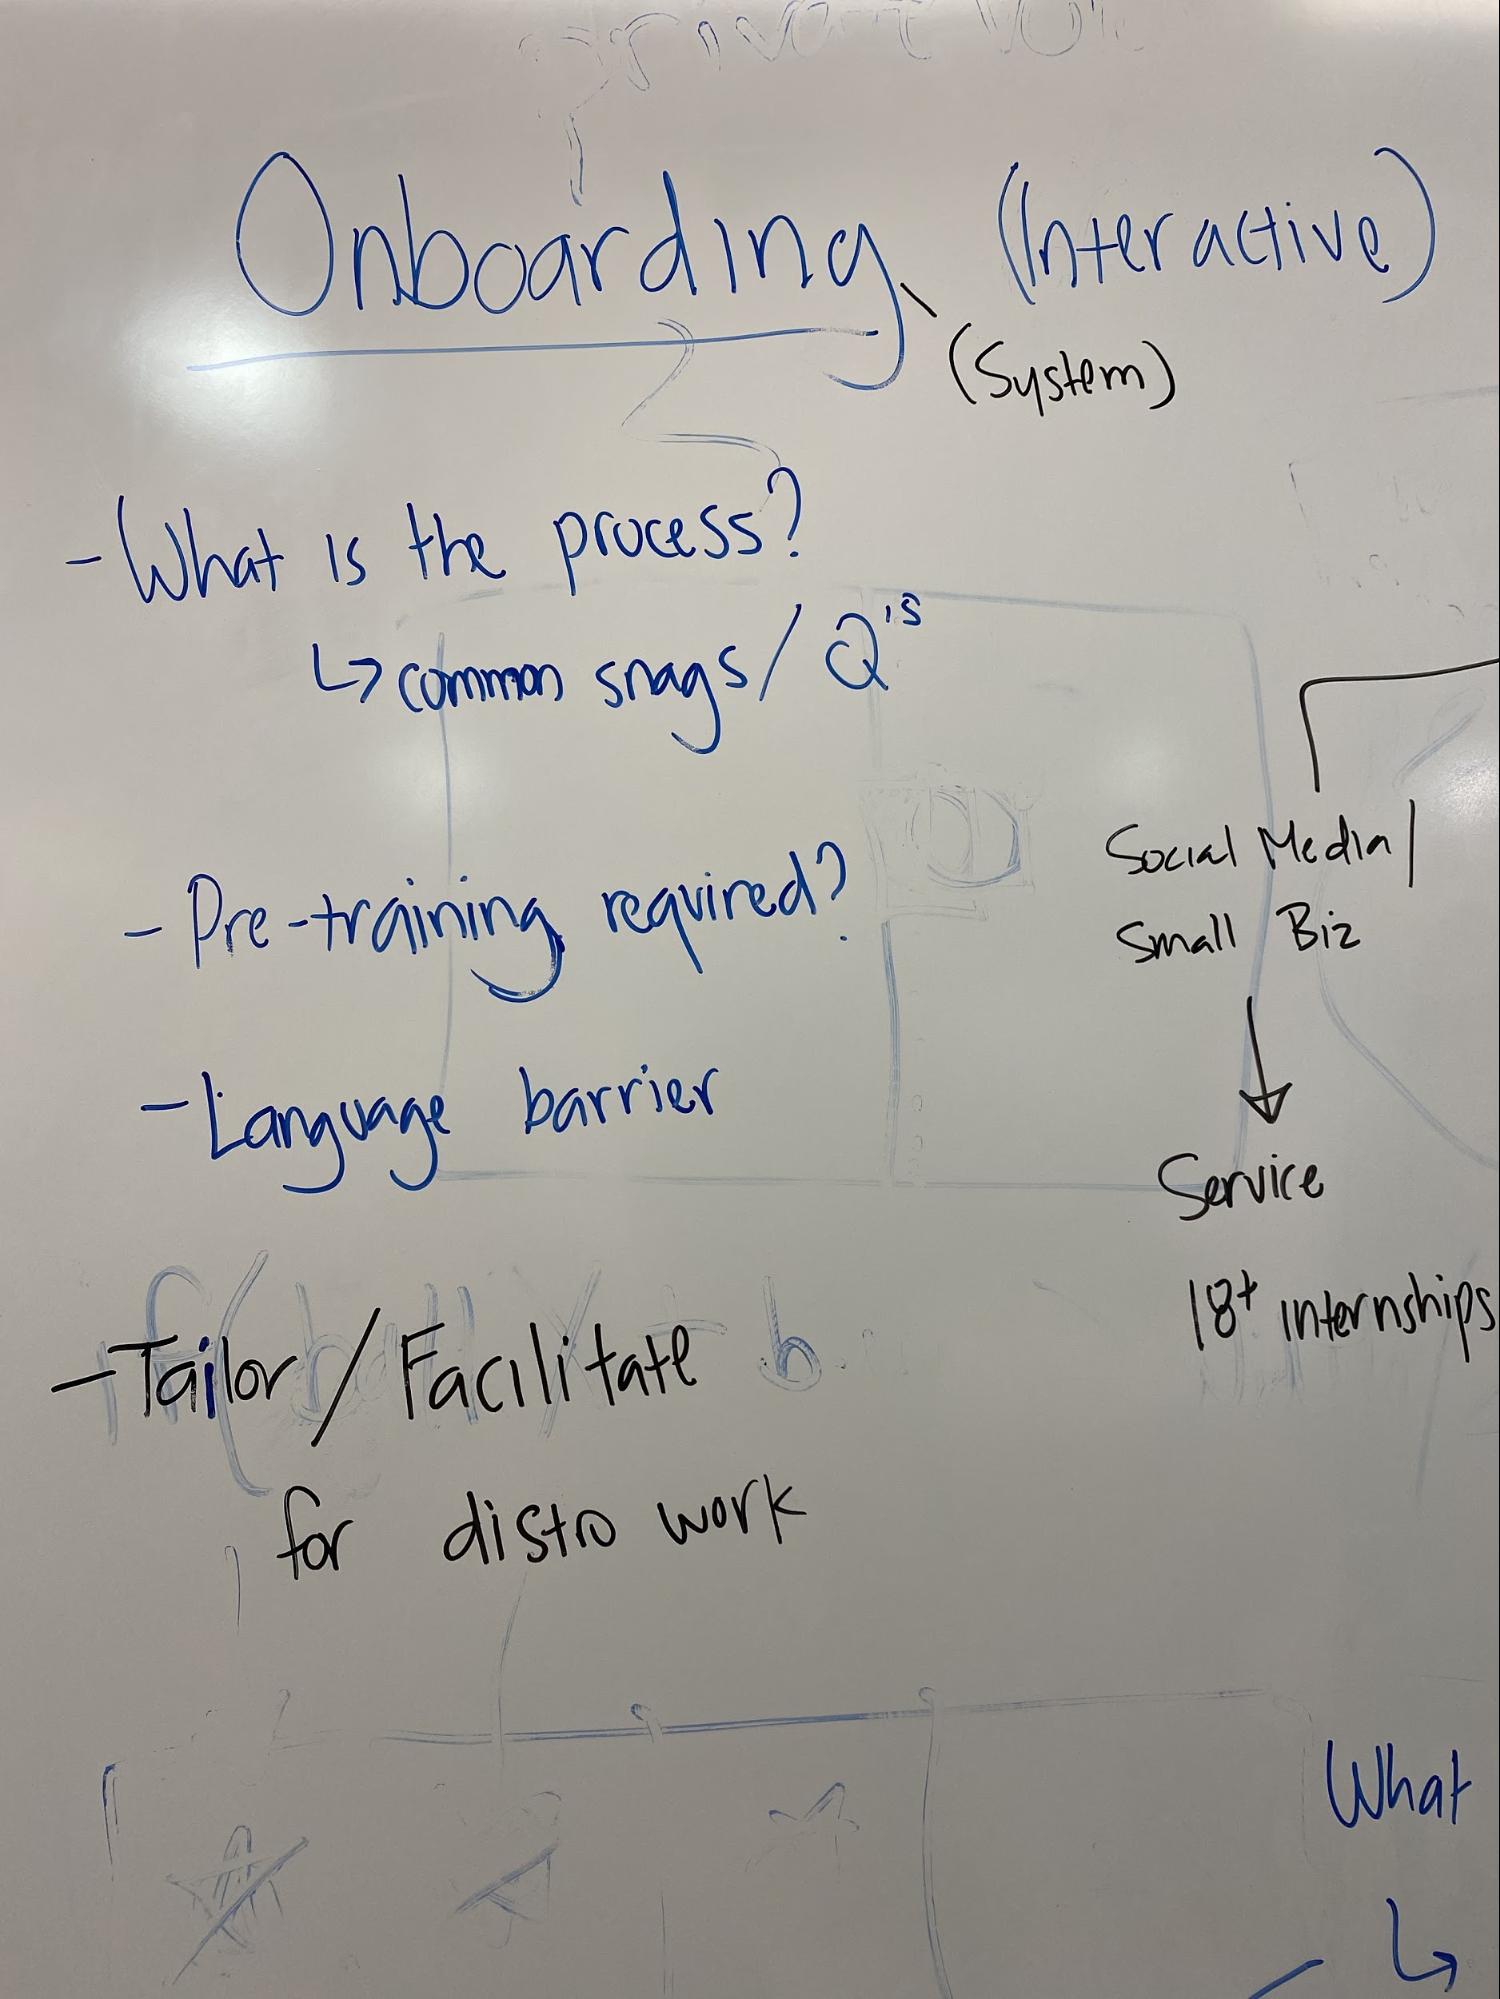 Onboarding (Interactive)
(System)
- What is the process?
↳ common snags / Q's
- Pre-training required?
- Language barrier
- Tailor / Facilitate
for distro work
Social Media /
Small Biz
↓
Service
18+ internships
What
↳